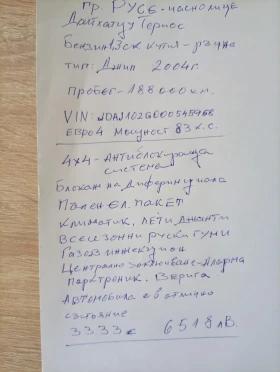 гр. Русе - частно лице
Дайхатцу Териос
Бензин 1,3СК кутия - ръчна
тип: Джип 2004г.
Пробег - 188000км.
VIN: JDAJ102G000545968
ЕВРО4 Мощност 83 к.с.
4x4 - Антиблокираща
система
Блокаж на диференциала
Пълен Ел. пакет
Климатик, лети джанти
Всесезонни руски гуми
Газов инжекцион
Централно заключване - Аларма
Парктроник. Верига
Автомобила е в отлично
състояние
3333€ 6518лв.